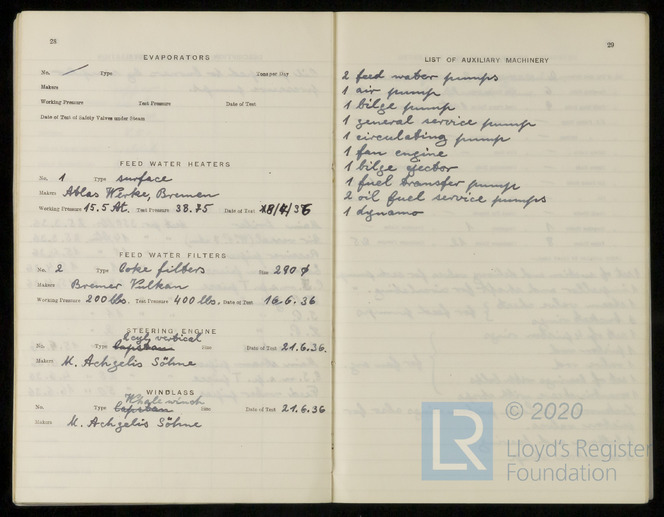 28
EVAPORATORS
No. / Type Tons per Day
Makers
Working Pressure Test Pressure Date of Test
Date of Test of Safety Valves under Steam
FEED WATER HEATERS
No. 1 Type surface
Makers Atlas Werke, Bremen
Working Pressure 15.5 At. Test Pressure 38.75 Date of Test 18/4/36
FEED WATER FILTERS
No. 2 Type Coke filters Size 290 ϕ
Makers Bremer Vulkan
Working Pressure 200 lbs. Test Pressure 400 lbs. Date of Test 16.6.36
STEERING ENGINE
2cyl. vertical
No. Type Capstan Size Date of Test 21.6.36.
Makers M. Achgelis Söhne
WINDLASS
Whale winch
No. Type Capstan Size Date of Test 21.6.36
Makers M. Achgelis Söhne
29
LIST OF AUXILIARY MACHINERY
2 feed water pumps
1 air pump
1 bilge pump
1 general service pump
1 circulating pump
1 fan engine
1 bilge ejector
1 fuel transfer pump
2 oil fuel service pumps
1 dynamo
LR © 2020
Lloyd's Register
Foundation